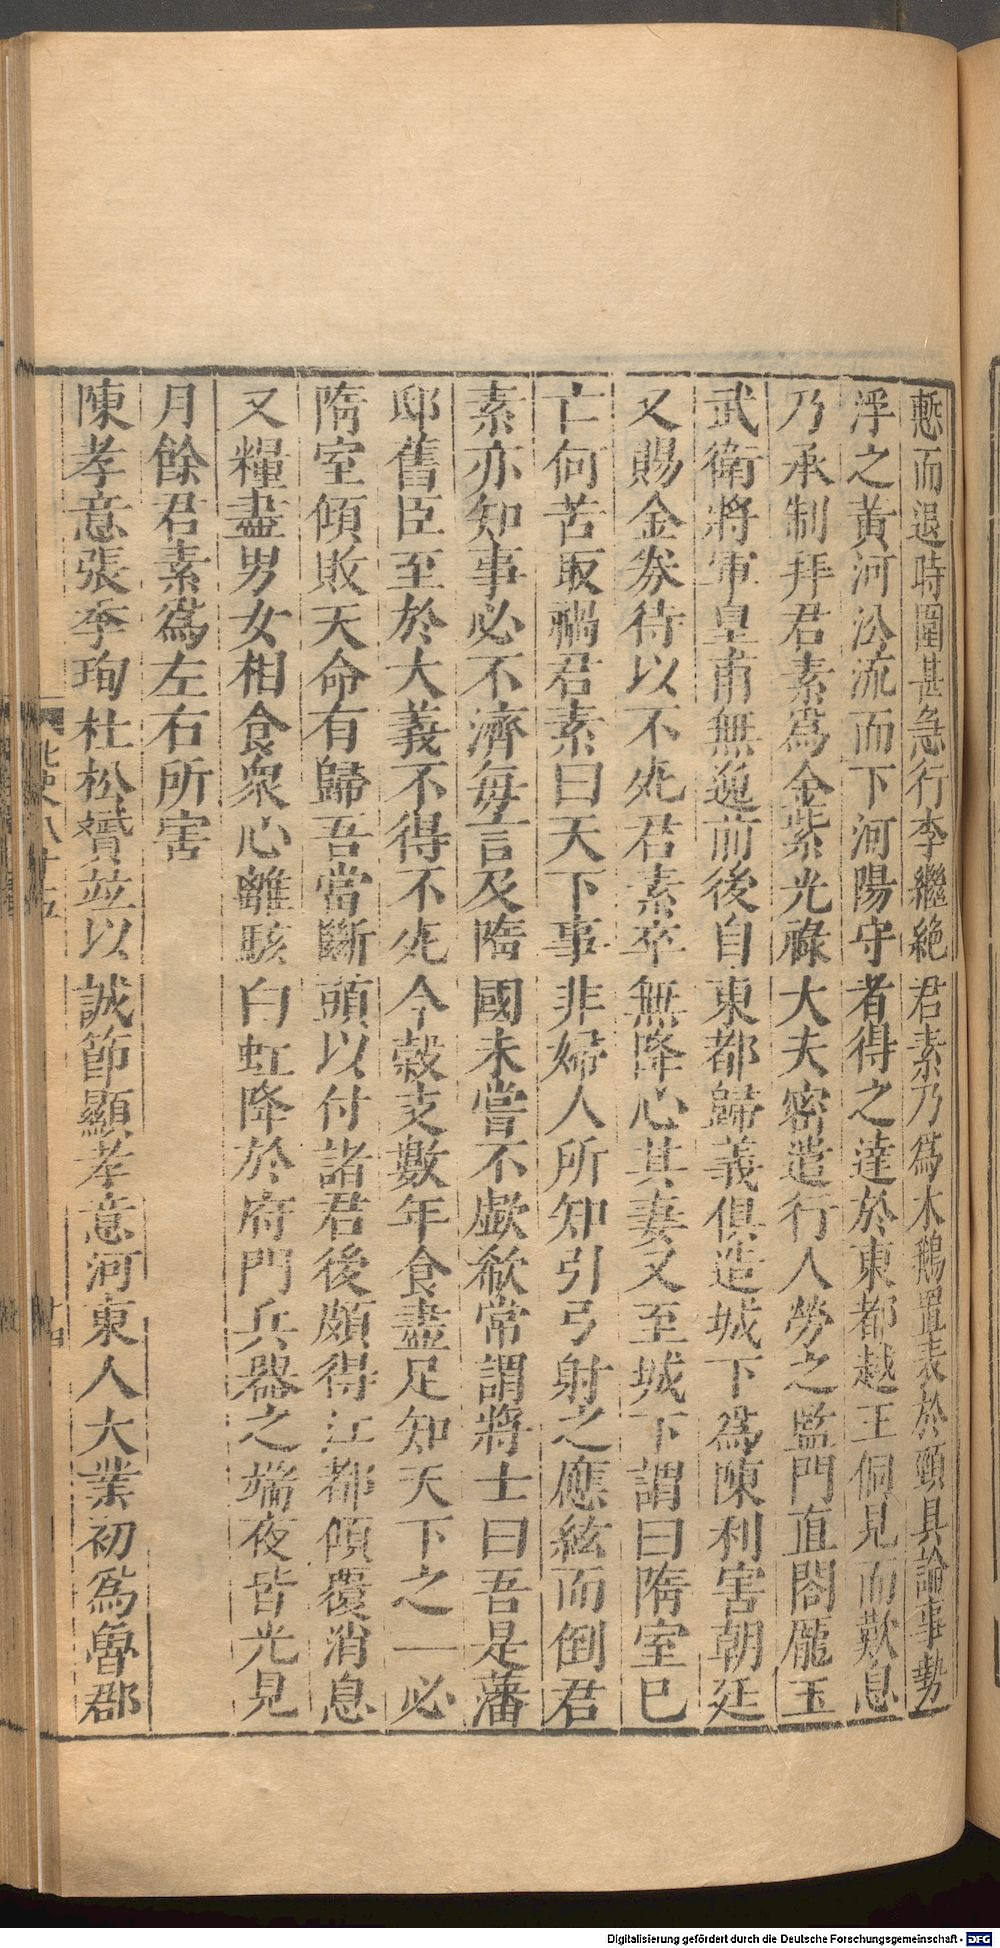 慙而退時圍甚急行李繼絶君素乃爲木鵝置表於頸具論事勢
浮之黃河㳂流而下河陽守者得之達於東都越王侗見而歎息
乃承制拜君素爲金紫光祿大夫密遣行人勞之監門直閤龐玉
武衛將軍皇甫無逸前後自東都歸義俱造城下爲陳利害朝廷
又賜金劵待以不死君素卒無降心其妻又至城下謂曰隋室已
亡何苦取禍君素曰天下事非婦人所知引弓射之應絃而倒君
素亦知事必不濟每言及隋國未嘗不歔欷常謂將士曰吾是藩
邸舊臣至於大義不得不死今穀支數年食盡足知天下之一必
隋室傾敗天命有歸吾當斷頭以付諸君後頗得江都傾覆消息
又糧盡男女相食衆心離駭白虹降於府門兵器之端夜皆光見
月餘君素爲左右所害
陳孝意張季珣杜松贇並以誠節顯孝意河東人大業初爲魯郡
北史八十五
十四
Digitalisierung gefördert durch die Deutsche Forschungsgemeinschaft - DFG